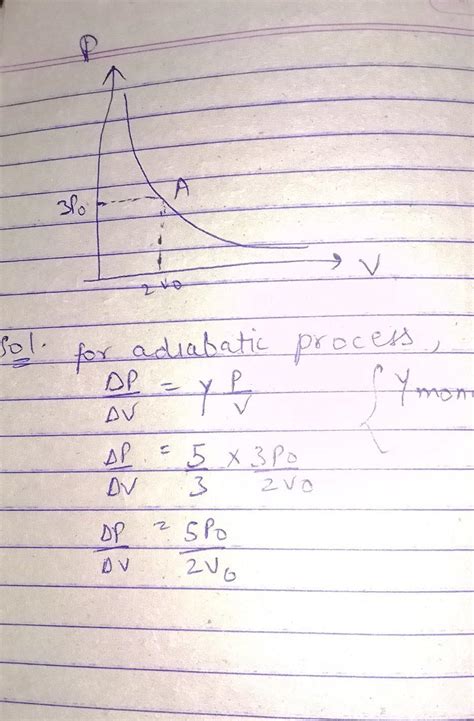 P
A
3P0
2V0
V
Sol. for adiabatic process,
ΔP/ΔV = γ P/V { γmon
ΔP/ΔV = 5/3 × 3P0/2V0
ΔP/ΔV = 5P0/2V0